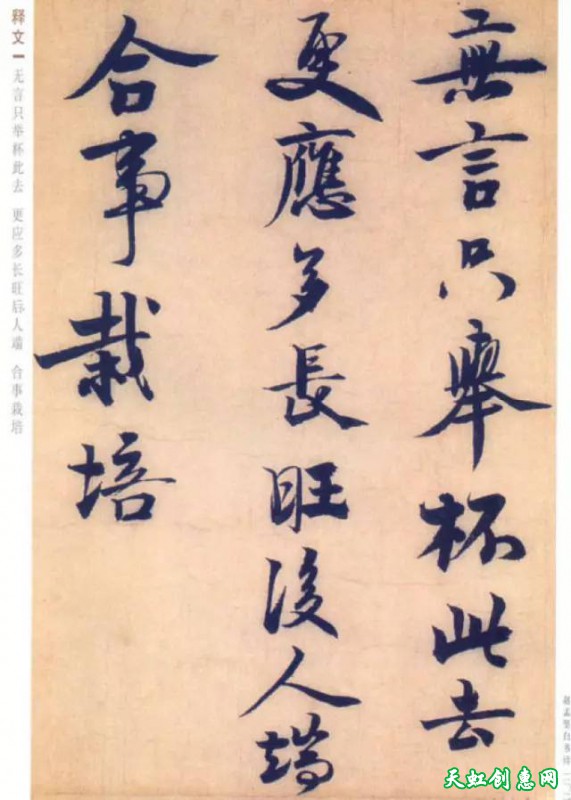 無言只舉杯此去
更應多長旺後人端
合事栽培
释文 无言只举杯此去 更应多长旺后人端 合事栽培
赵孟坚自书诗
天虹创惠网